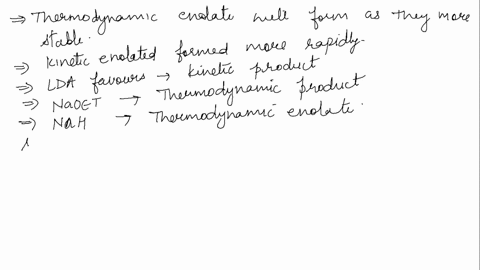 ⇒ Thermodynamic enolate will form as they more
stable.
⇒ Kinetic enolated formed more rapidly.
⇒ LDA favours → kinetic product
⇒ NaOET → Thermodynamic product
⇒ NaH → Thermodynamic enolate.